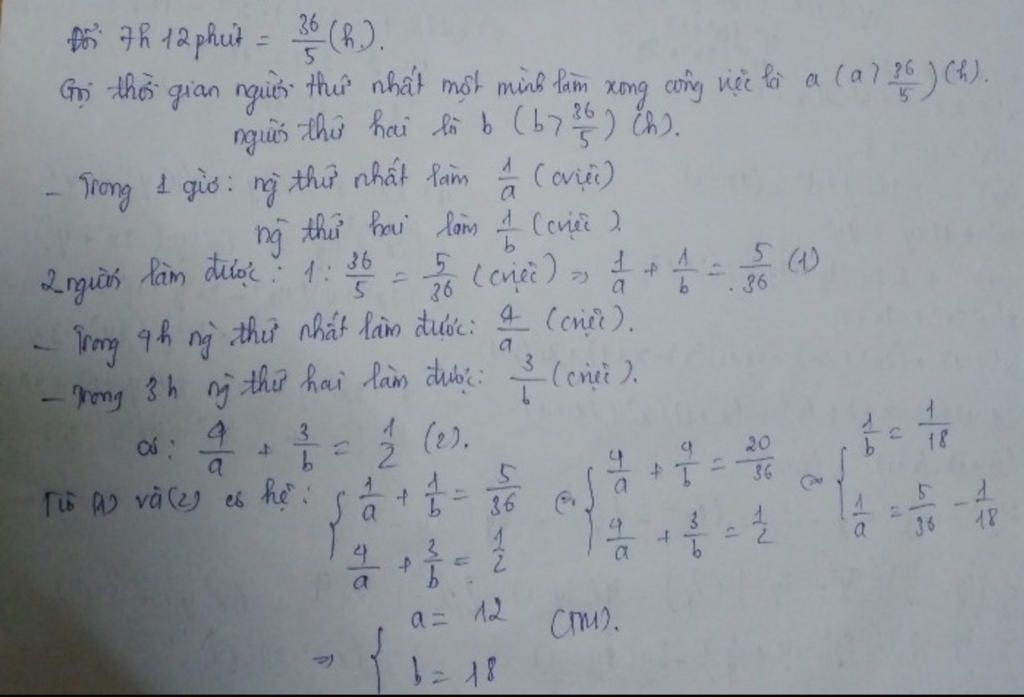 Đổi 7h 12 phút = 36/5 (h).
Gọi thời gian người thứ nhất một mình làm xong công việc là a (a > 36/5) (h).
người thứ hai là b (b > 36/5) (h).
- Trong 1 giờ: ng thứ nhất làm 1/a (cviệc)
ng thứ hai làm 1/b (cviệc).
2 người làm được: 1 : 36/5 = 5/36 (cviệc) => 1/a + 1/b = 5/36 (1)
- Trong 4h ng thứ nhất làm được: 4/a (cviệc).
- Trong 3h ng thứ hai làm được: 3/b (cviệc).
có: 4/a + 3/b = 1/2 (2).
Từ (1) và (2) có hệ: { 1/a + 1/b = 5/36 ; 4/a + 3/b = 1/2 ⇔ { 4/a + 4/b = 20/36 ; 4/a + 3/b = 1/2 ⇔ { 1/b = 1/18 ; 1/a = 5/36 - 1/18
=> { a = 12 ; b = 18 (TM).